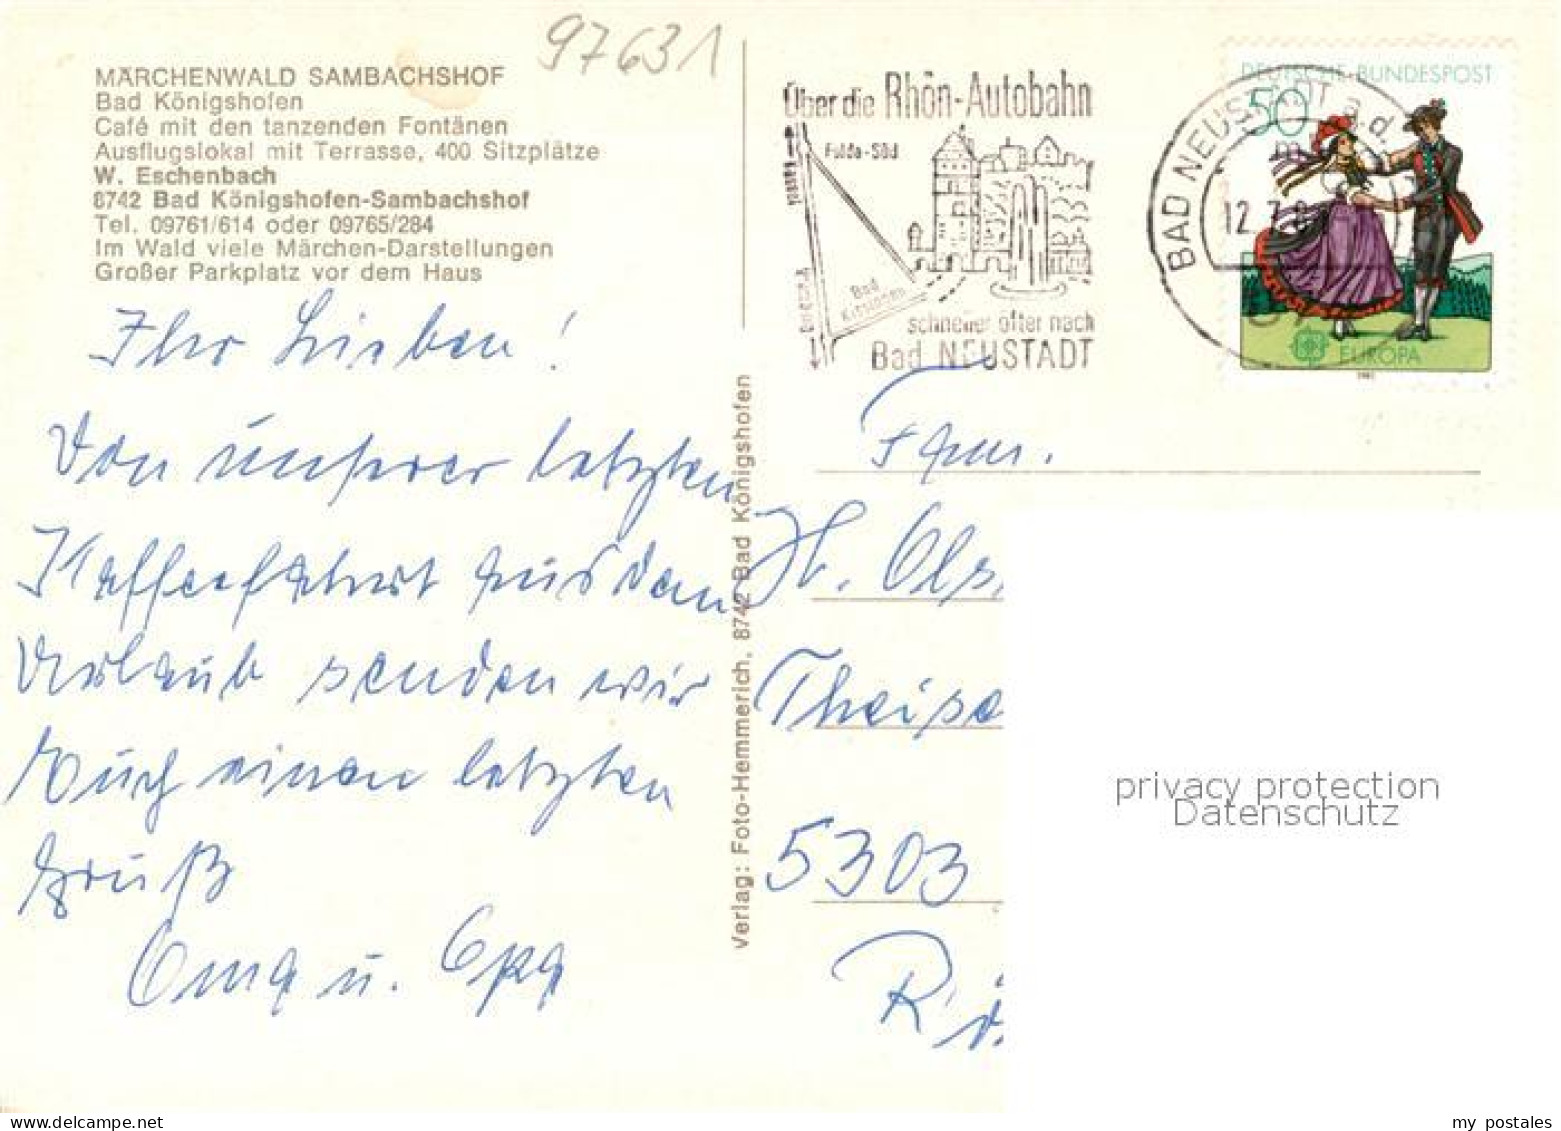 97631
MÄRCHENWALD SAMBACHSHOF
Bad Königshofen
Café mit den tanzenden Fontänen
Ausflugslokal mit Terrasse, 400 Sitzplätze
W. Eschenbach
8742 Bad Königshofen-Sambachshof
Tel. 09761/614 oder 09765/284
Im Wald viele Märchen-Darstellungen
Großer Parkplatz vor dem Haus
Ihr Lieben!
Von unserer letzten
Kaffeefahrt aus dem
Urlaub senden wir
Euch einen letzten
Gruß
Oma u. Opa
Verlag: Foto-Hemmerich, 8742 Bad Königshofen
Über die Rhön-Autobahn
Fulda-Süd
Kassel
Würzburg
Bad
Kissingen
schneller öfter nach
Bad NEUSTADT
BAD NEUSTADT a.d.
12.7.8
DEUTSCHE BUNDESPOST
50
EUROPA
1981
Fam.
H. Ols
Theise
5303
privacy protection
Datenschutz
my postales